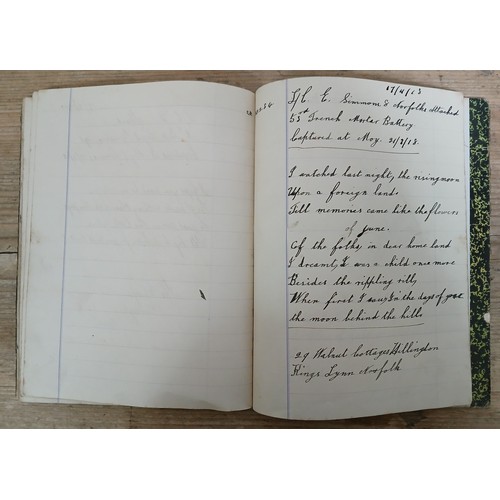 17/4/18
L/C. E. Simmons 8 Norfolks Attached
53rd Trench Mortar Battery
Captured at Moy. 21/3/18.
I watched last night, the rising moon
Upon a foreign land,
Till memories came like the flowers
of June.
Of the folks, in dear home land
I dreamt, I was a child once more
Besides the rippling rill,
When first I saw, In the days of yore
the moon behind the hills
29 Walnut Cottages Hillington
Kings Lynn Norfolk